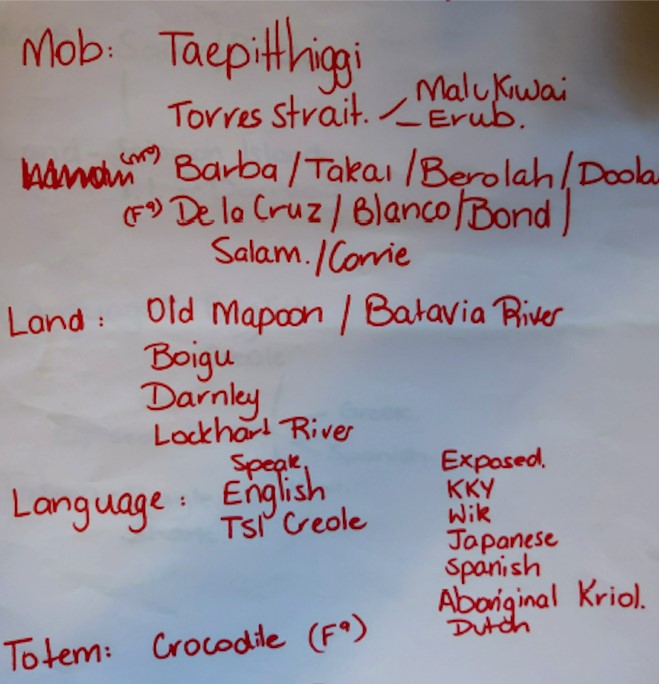 Mob: Taepitthiggi
Torres Strait. Malu Kiwai
Erub.
(Mª) Barba / Takai / Berolah / Doola
(Fª) De la Cruz / Blanco / Bond /
Salam. / Corrie
Land: Old Mapoon / Batavia River
Boigu
Darnley
Lockhart River
Language: Speak
English
TSI Creole
Exposed.
KKY
Wik
Japanese
Spanish
Aboriginal Kriol.
Dutch
Totem: Crocodile (Fª)